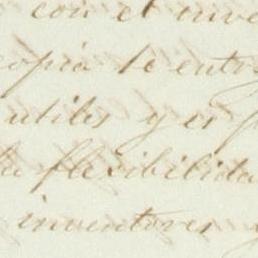 con el inve
copia se entr
utiles y es p
la flexibilida
inventores y